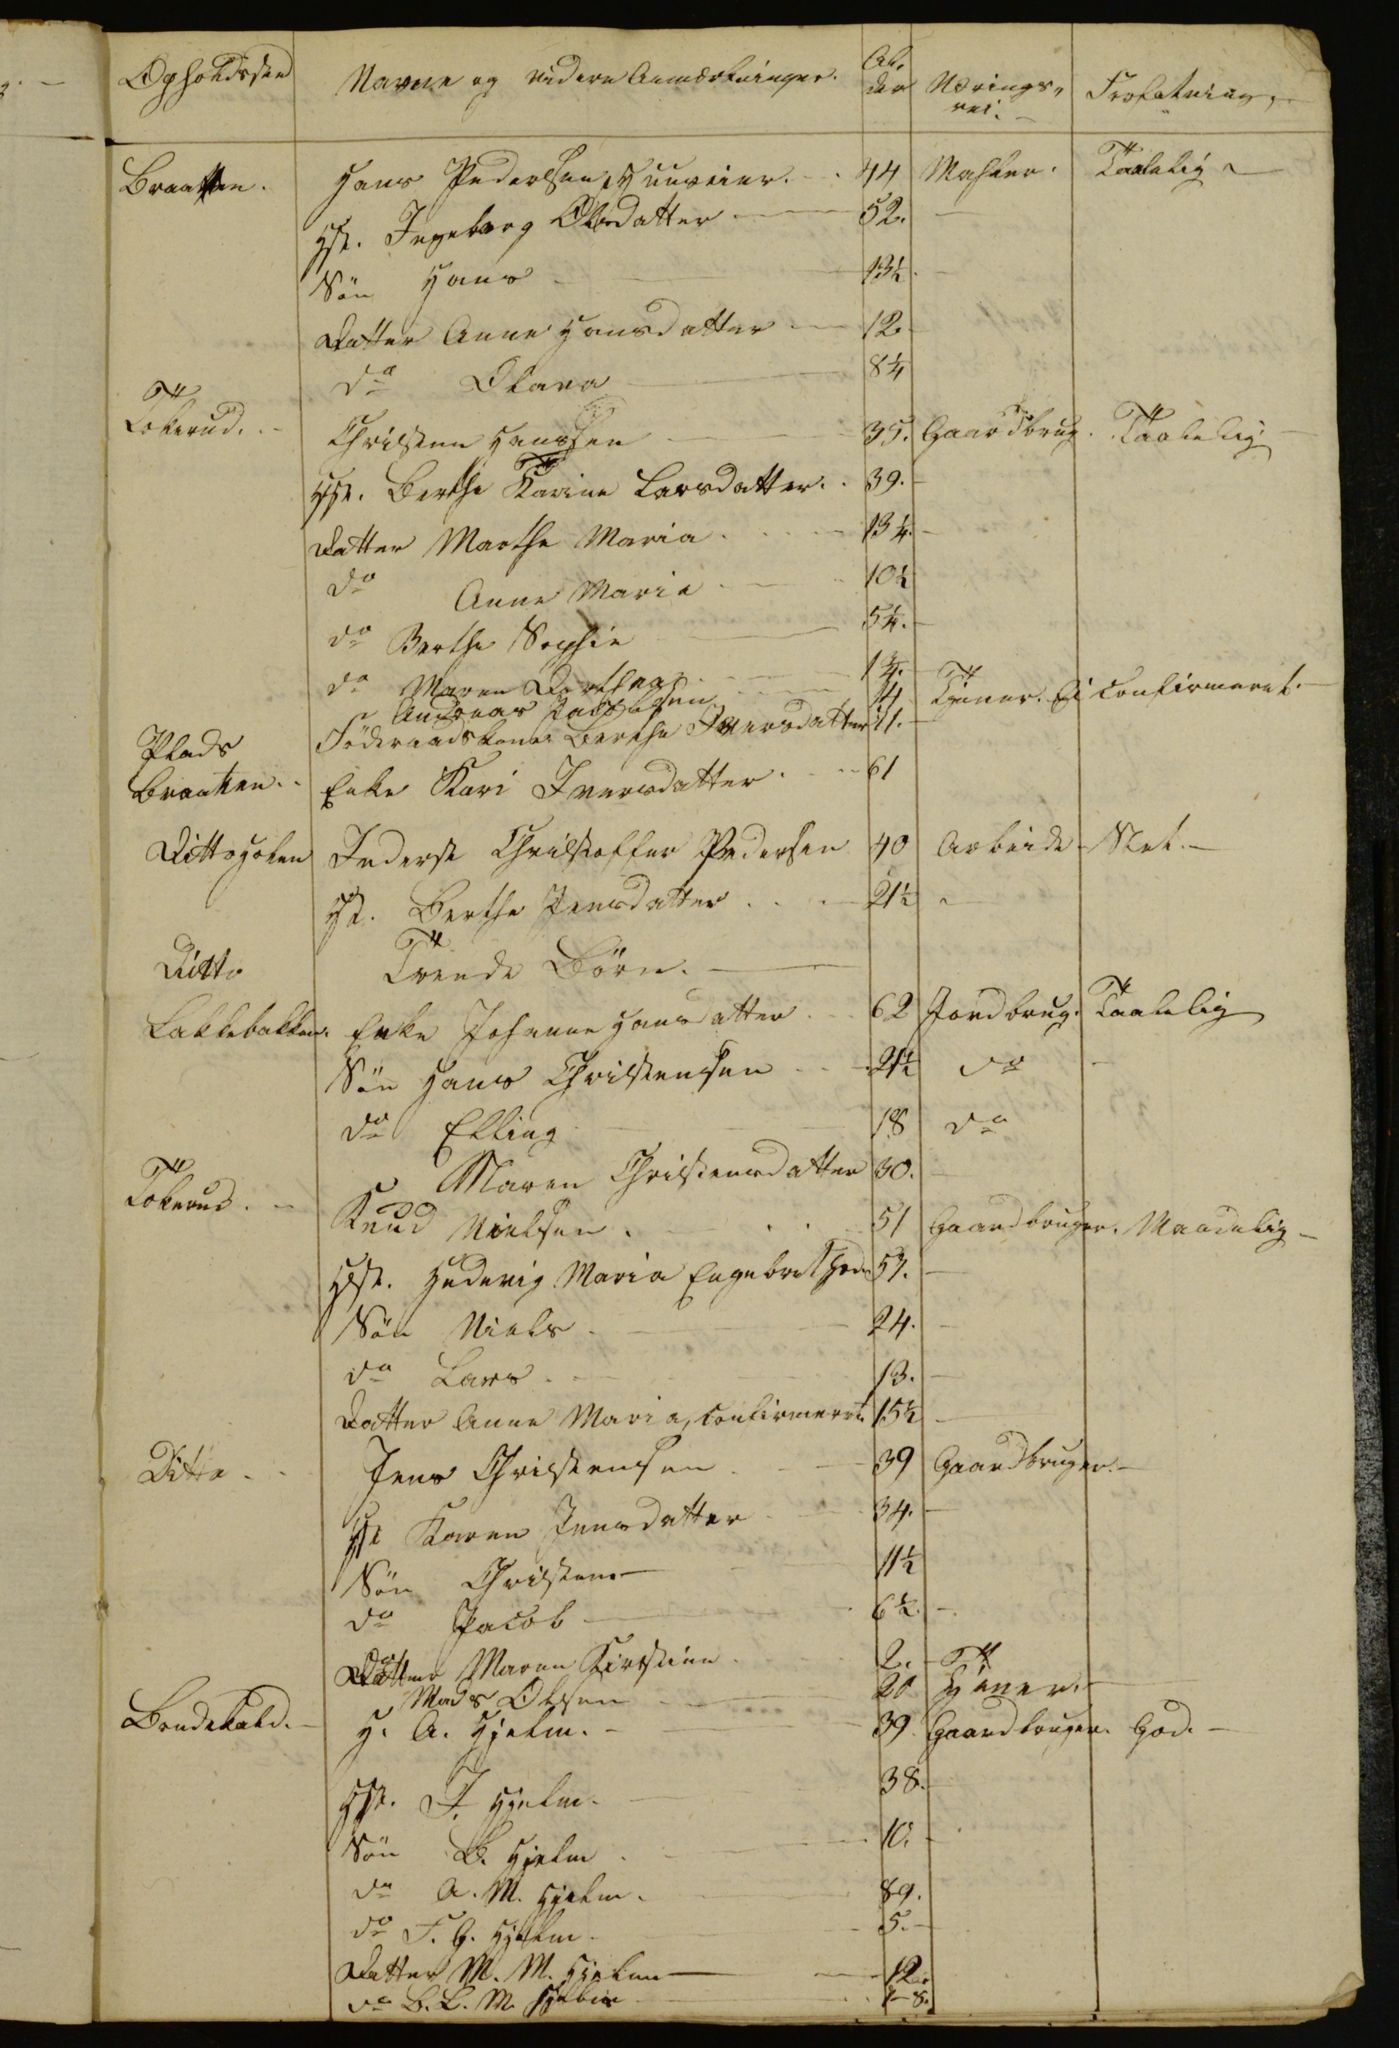 Opholdssted Navne og videre Anmærkninger. Al- der Nærings- vei. Forfatning
Braatten. Hans Pedersen, Huuseier. 44 Mahler. Taalelig
Hst. Ingeborg Olsdatter 52.
Søn Hans 13½
Datter Anne Hansdatter 12.
do Olava 8¼
Tokerud. Christen Hanssen 35. Gaardbrug. Taalelig.
Hst. Berthe Karine Larsdatter. 39.
Datter Marthe Maria 13¼.
do Anne Marie 10½
do Berthe Sophie 5¼.
do Maren Dorthea 1¼.
Andreas Jacobsen 14 Tjener. Ei Confirmeret.
Föderaadskone Berthe Iversdatter 71.
Plads
Braaten. Enke Kari Iversdatter 61
Ditto Holen Inderst Christoffer Pedersen 40 Arbeide Slet.
Hst. Berthe Jensdatter 21½
Ditto Trende Börn.
Lakkebakken. Enke Johanne Hansdatter 62 Jordbrug. Taalelig
Søn Hans Christensen 21½ do
do Elling 18 do
Maren Christensdatter 30.
Tokerud. Knud Nielsen. 51 Gaardbruger. Maadelig
Hst. Hedevig Maria Engebretsd. 57.
Søn Niels 24.
do Lars 13.
Datter Anne Maria, Confirmeret. 15½
Ditto Jens Christensen 39 Gaardbruger.
Hst Karen Jensdatter 34.
Søn Christen 11½
do Jacob 6½.
Datter Maren Kirstine 2.
Mads Olsen 20 Tjener.
H. A. Hjelm. 39 Gaardbruger. God.
Hst. J. Hjelm. 38.
Søn B. Hjelm 10.
do A. M. Hjelm. 89.
do F. G. Hjelm. 5.
Datter M. M. Hjelm 12.
do B. L. M. Hjelm